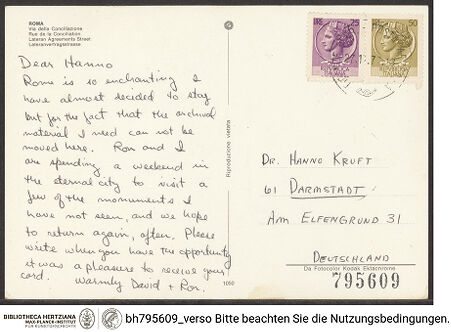 ROMA
Via della Conciliazione
Rue de la Conciliation
Lateran Agreements Street
Lateranvertragstrasse
Dear Hanno
Rome is so enchanting I
have almost decided to stay
but for the fact that the archival
material I need can not be
moved here. Ron and I
are spending a weekend in
the eternal city to visit a
few of the monuments I
have not seen, and we hope
to return again, often. Please
write when you have the opportunity
it was a pleasure to receive your
card. Warmly David + Ron.
Riproduzione vietata
1050
25
50
Dr. Hanno Kruft
61 Darmstadt
Am Elfengrund 31
Deutschland
Da Fotocolor Kodak Ektachrome
795609
BIBLIOTHECA HERTZIANA
MAX-PLANCK-INSTITUT
FÜR KUNSTGESCHICHTE
bh795609_verso Bitte beachten Sie die Nutzungsbedingungen.